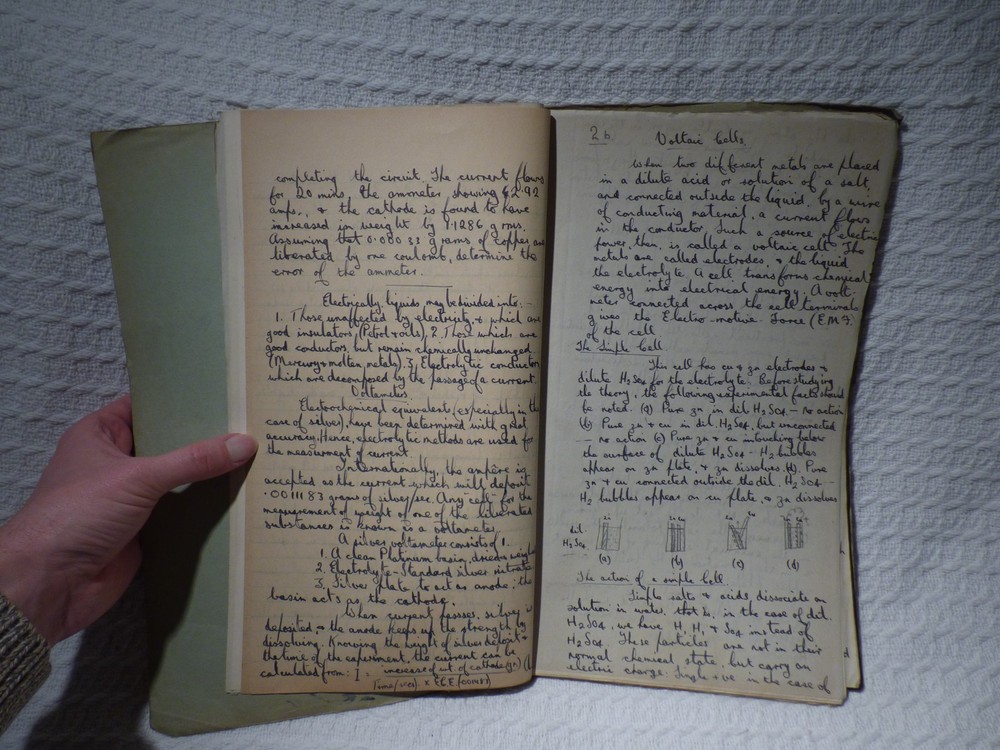 completing the circuit. The current flows
for 20 mins. the ammeter showing 2.92
amps., & the cathode is found to have
increased in weight by 1.1286 grms.
Assuming that 0.00033 grams of copper are
liberated by one coulomb, determine the
error of the ammeter.
Electrically liquids may be divided into:-
1. Those unaffected by electricity & which are
good insulators, (Petrol & oils), 2. Those which are
good conductors, but remain chemically unchanged.
(Mercury & molten metals). 3. Electrolytic conductors
which are decomposed by the passage of a current.
Voltameters
Electrochemical equivalents, (especially in the
case of silver), have been determined with great
accuracy. Hence, electrolytic methods are used for
the measurment of current.
Internationally, the ampère is
accepted as the current which will deposit
.0011183 grams of silver/sec. Any cell for the
measurement of weight of one of the liberated
substances is known is a voltameter.
A silver voltameter consists of 1.
1. A clean Platinum basin, dried & weighed
2. Electrolyte - Standard silver nitrate
3. Silver plate to act as anode; the
basin acts as the cathode.
When current passes, silver is
deposited, & the anode keeps up the strength by
dissolving. Knowing the weight of silver deposit &
the time of the experiment, the current can be
calculated from: I = increase of wt. of cathode (gn)
Time (secs) x E.C.E (.001118)
26 Voltaic Cells.
When two different metals are placed
in a dilute acid or solution of a salt,
and connected outside the liquid, by a wire
of conducting material, a current flows
in the conductor. Such a source of electric
power, then, is called a voltaic cell. The
metals are called electrodes, & the liquid
the electrolyte. A cell transforms chemical
energy into electrical energy. A volt-
meter connected across the cell terminals
gives the Electro-motive-Force (E.M.F.
of the cell
The Simple Cell
This cell has cu & zn electrodes &
dilute H2SO4 for the electrolyte. Before studying
the theory, the following experimental facts should
be noted. (a) Pure zn in dil. H2SO4 - no action
(b) Pure zn & cu in dil. H2SO4, but unconnected
- no action (c) Pure zn & cu in touching below
the surface of dilute H2SO4 - H2 bubbles
appear on zn plate, & zn dissolves. (d). Pure
zn & cu connected outside the dil. H2SO4 -
H2 bubbles appear on cu plate, & zn dissolves
dil
H2SO4
(a) (b) (c) (d)
The action of a simple Cell
Simple salts & acids dissociate on
solution in water. that is, in the case of dil.
H2SO4, we have H, H, & SO4 instead of
H2SO4. These particles are not in their
normal chemical state, but carry an
electric charge: Single +ve in the case of